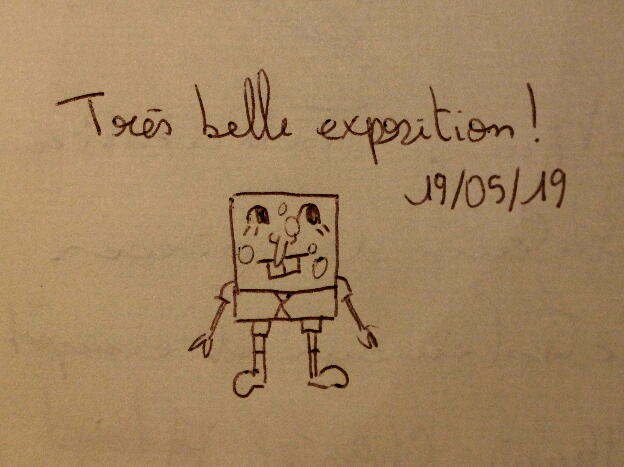 Très belle exposition !
19/05/19